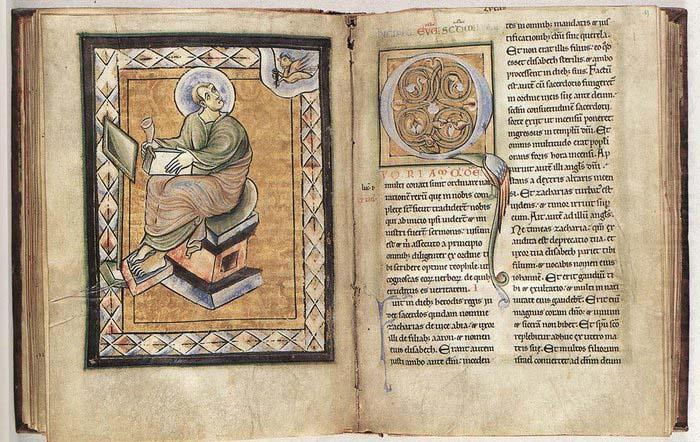 EVG SCDM
UONIAM QVIDE
multi conati sunt ordinare nar
rationem rerū que in nobis
complete st̄ sicut tradiderunt nobis
qui ab inicio ipsi uiderūt & mi
nistri fuerūt sermonis: uisum
est & assecuto a principio
omnib; diligenter ex ordine ti
bi scribere optime theophile ut
cognoscas eorū uerborū de quib;
eruditus es ueritatem.
Fuit in dieb; herodis regis iu
dee sacerdos quidam nomine
zacharias de uice abia & uxor
illi de filiab; aaron & nomen
eius elisabeth. Erant autem
iusti ambo ante dm̄ inceden
tes in omnib; mandatis & ius
tificationib; dn̄i sine querela.
Et non erat illis filius eo qd̄
esset elisabeth sterilis & ambo
processent in dieb; suis. Factū
est autē cū sacerdotio fungeret᷑
in ordine uicis sue ante deum:
scdm̄ consuetudinem sacerdotii
sorte exiit ut incensū poneret
ingressus in templū dn̄i. Et
omnis multitudo erat popl̄i
orans foris hora incensi. Ap
paruit autē illi angl̄s dn̄i
stans a dextris altaris incen
si. Et zacharias turbat᷑ est
uidens & timor irruit sup
eum. Ait autē ad illū angl̄s.
Ne timeas zacharia: qm̄ ex
audita est deprecatio tua. & ux
or tua elisabeth pariet tibi
filium & uocabis nomen eius
iohannem. Et erit gaudiū ti
bi & exultatio. & multi in nati
uitate eius gaudebt̄. Et erit eni
magnus coram dn̄o: & uinum
& sicerā non bibet. Et spū sco
replebitur adhuc ex utero mat
ris sue. Et multos filiorum
israel conuertet ad dm̄ deum